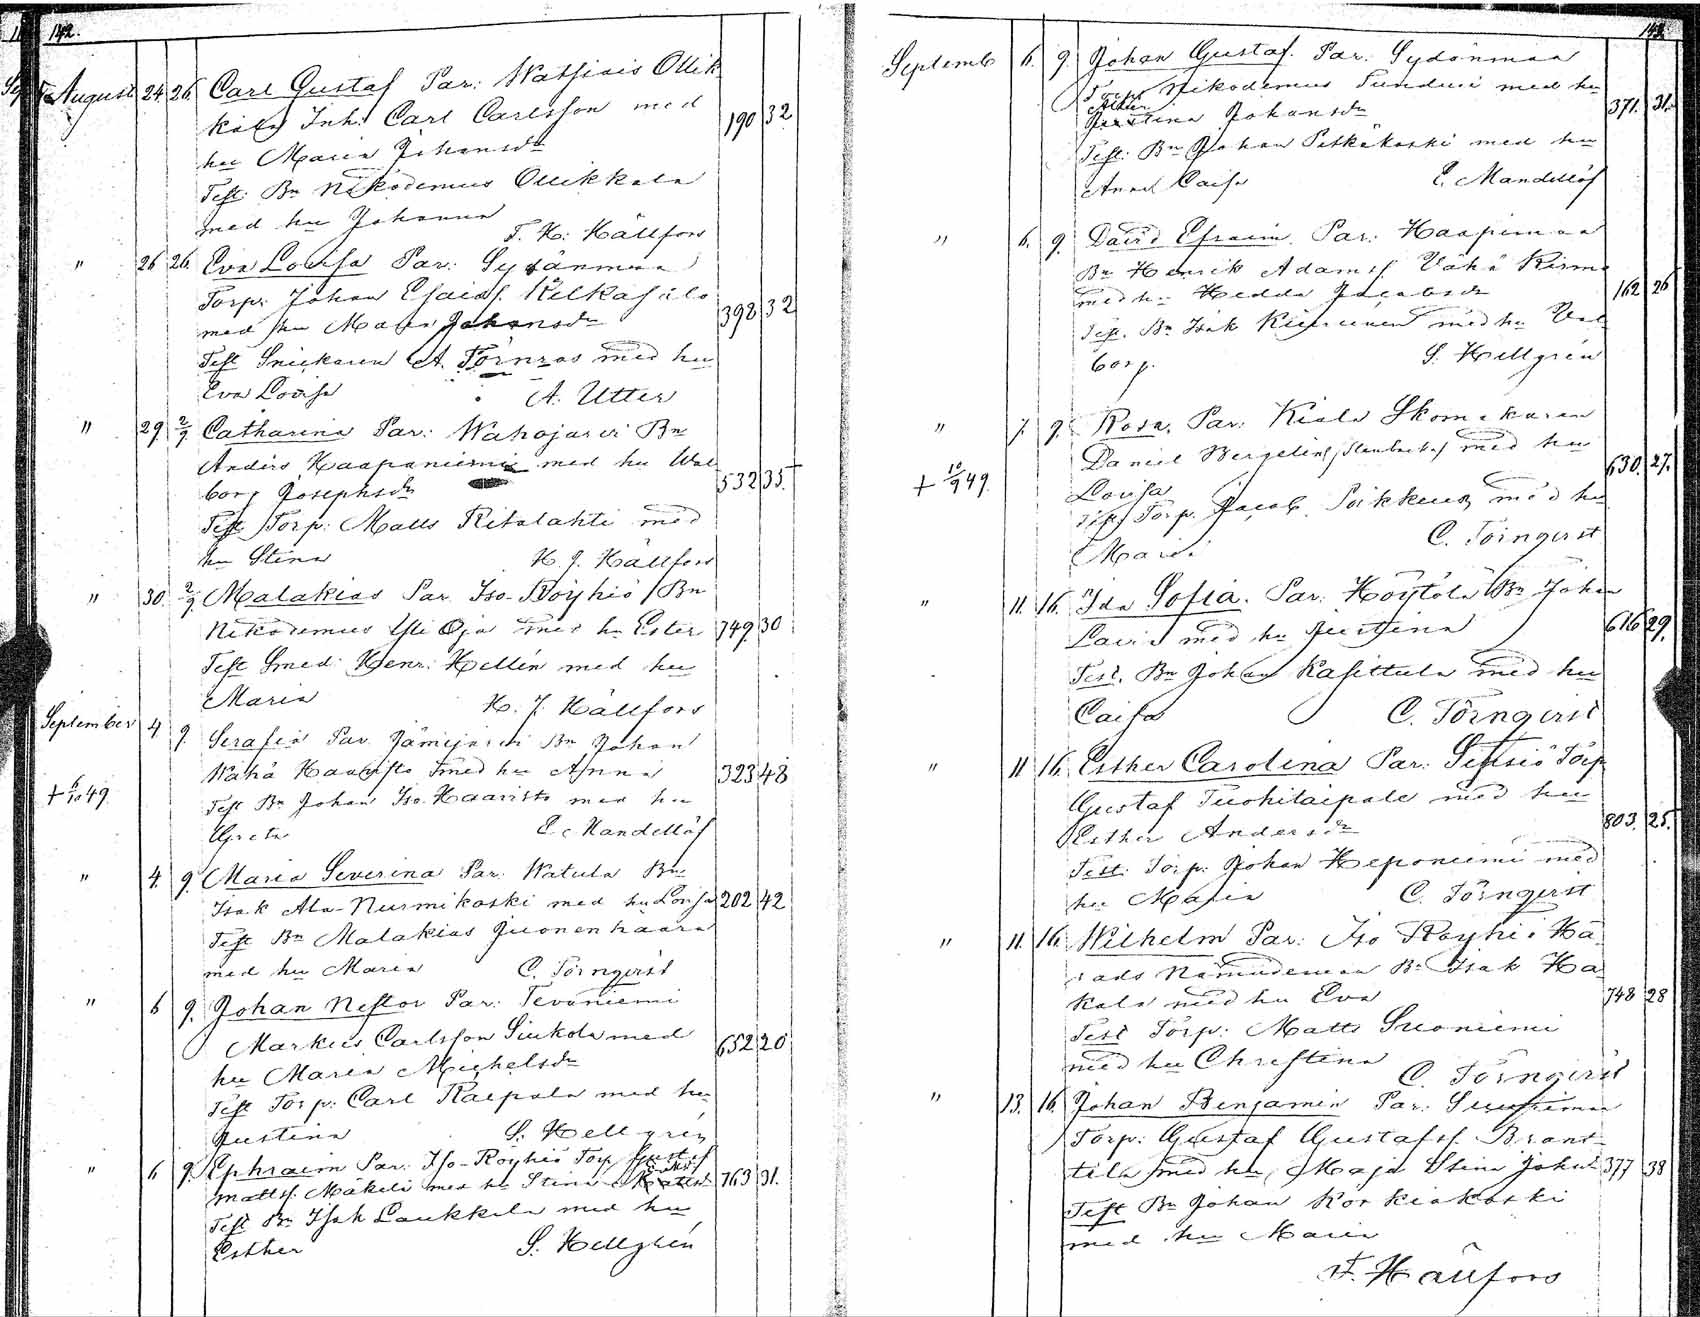 142.
August 24. 26. Carl Gustaf Par: Watsiais Ollik
kala Inh: Carl Carlsson med
hu Maria Johansdr 190 32
Test: Bn Nikodemus Ollikkala
med hu Johanna
F. H. Hällfors
" 26 26. Eva Lovisa Par: Sydänmaa
Torp: Johan Esaiss. Kelkasalo
med hu Maria Johansdr 398 32
Test Snickaren A. Törnroos med hu
Eva Lovisa A. Utter
" 29. 2/9. Catharina Par: Wahojarvi Bn
Anders Haapaniemi med hu Wal
borg Josephsdr 532 35
Test Torp: Matts Ritalahti med
hu Stina H. J. Hällfors
" 30. 2/9. Malakias Par Iso-Röyhiö Bn
Nikodemus Yli Oja med hu Ester 749 30
Test Smed: Henr: Hellén med hu
Maria H. J. Hällfors
September 4 9. Serafia Par Jämijarvi Bn Johan
Wähä Haaristo med hu Anna 323 48
+ 6/10 49. Test Bn Johan Iso-Haaristo med hu
Greta E. Mandellöf
" 4. 9. Maria Severina Par: Watula Bn
Isak Ala-Nurmikoski med hu Lovisa 202 42
Test Bn Malakias Juonenhaara
med hu Maria C. Törnqvist
" 6 9. Johan Nestor Par: Tevaniemi
Markus Carlsson Siukola med 652 20
hu Maria Michelsdr
Test Torp: Carl Raipala med hu
Justina S. Hellgrén
" 6 9. Ephraim Par: Iso-Röyhiö Torp Gustaf
Mattss. Mäkelä med hu Stina 763 31.
Test Bn Isak Laukkala med hu
Esther S. Hellgrén
143.
Septemb 6. 9. Johan Gustaf. Par: Sydänmaa
Torp: Nikodemus med hu
Justina Johansdr 371. 31.
Test: Bn Johan Petkäkoski med hu
Anna Caisa E. Mandellöf
" 6. 9. David Efraim. Par: Haapimaa
Bn Henrik Adamss. Vähä
med hu Hedda Jacobsdr 162 26
Test. Bn Isak med hu Val
borg. S. Hellgrén
" 7. 9. Rosa. Par: Kiala Skomakaren
Daniel Bergelin med hu
+ 10/9 49. Lovisa 630. 27.
Test Torp. Jacob Poikkeus med hu
Maria C. Törnqvist
" 11. 16. Ida Sofia. Par: Höytölä Bn Johan
Lauri med hu Justina 616 29.
Test. Bn Johan Kasittula med hu
Caisa C. Törnqvist
" 11 16. Esther Carolina Par: Sejtsiö Torp
Gustaf Tuohitaipale med hu
Esther Andersdr 803. 25.
Test: Torp: Johan Heponiemi med
hu Maria C. Törnqvist
" 11. 16. Wilhelm Par: Iso Röyhiö Hä
rads Nämndeman Bn Isak Ha
kala med hu Eva 748 28
Test Torp: Matts Suoniemi
med hu Christina
C. Törnqvist
" 13. 16. Johan Benjamin Par: Suurimaa
Torp: Gustaf Gustafss. Brant-
tila med hu Maja Stina Johdr 377 38
Test Bn Johan Korkiakoski
med hu Maria
F. Hällfors